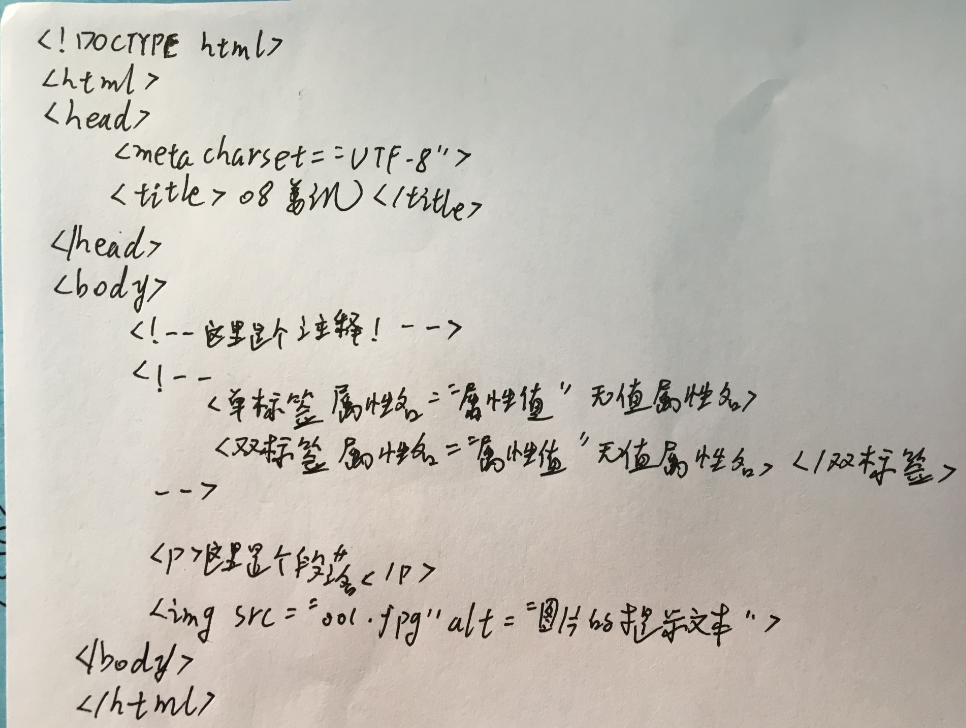 <!DOCTYPE html>
<html>
<head>
<meta charset="UTF-8">
<title>08 </title>
</head>
<body>
<!--这里是个注释! -->
<!--
<单标签 属性名="属性值" 无值属性名>
<双标签 属性名="属性值" 无值属性名> </双标签>
-->
<p>这里是个段落</p>
<img src="001.jpg" alt="图片的提示文本">
</body>
</html>